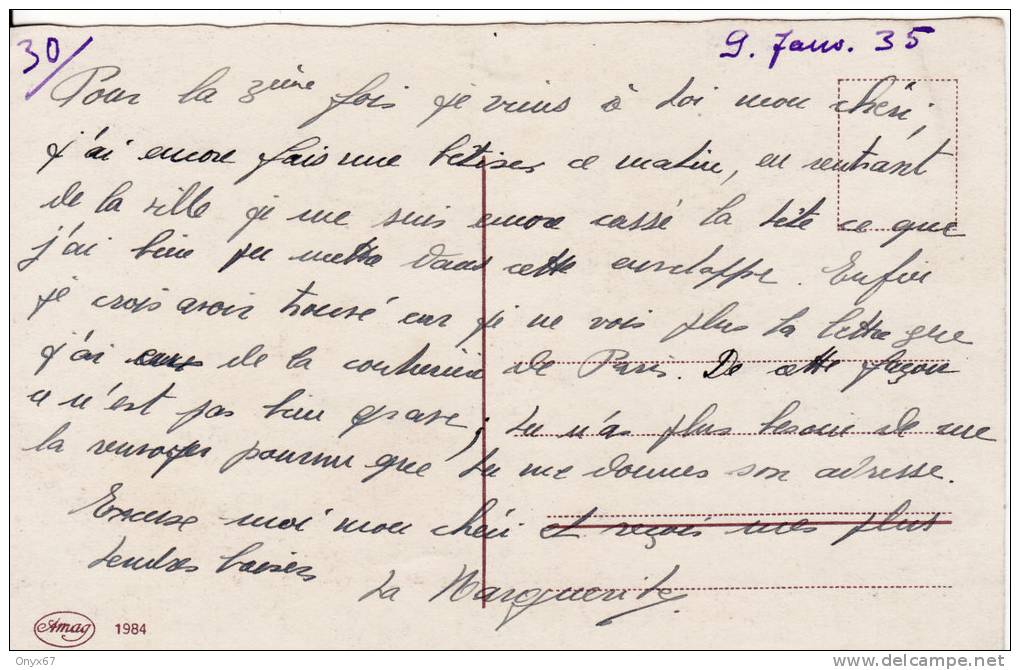 30/
9. Janv. 35
Pour la 3ième fois je viens à toi mon chéri,
j'ai encore fais une bêtise, ce matin, en rentrant
de la ville je me suis encore cassé la tête ce que
j'ai bien pu mettre dans cette enveloppe. Enfin
je crois avoir trouvé car je ne vois plus la lettre que
j'ai eus de la couturière de Paris. De cette façon
n'est pas bien grave, tu n'as plus besoin de me
la renvoyer pourvu que tu me donnes son adresse.
Excuse-moi mon chéri et reçois mes plus
tendres baisers
Ta Marguerite.
Amag 1984
Onyx67
http://www.delcampe.net